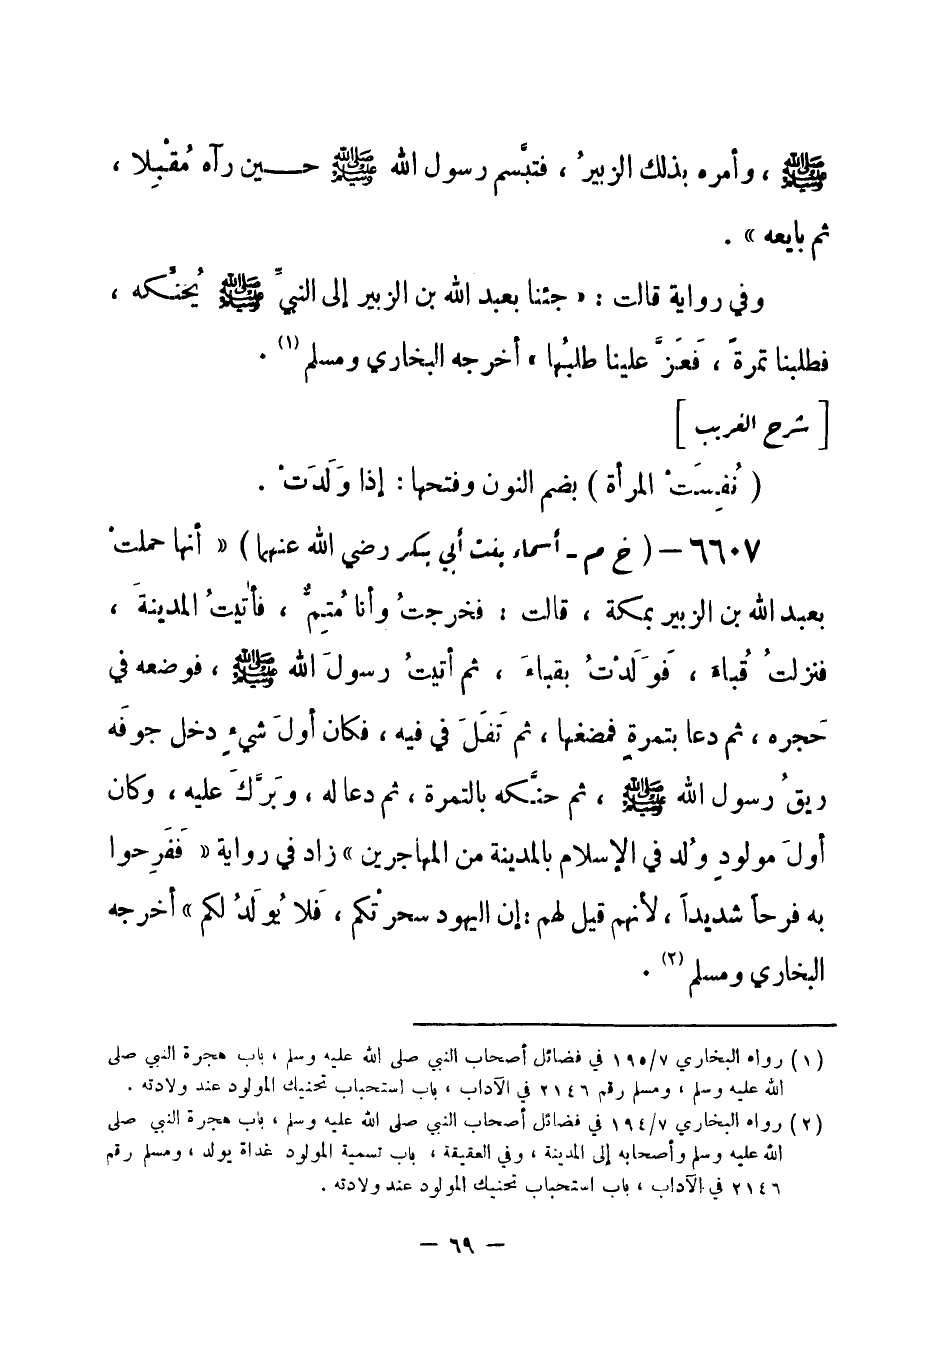 ﷺ ، وأمره بذلك الزبيرُ ، فتبَّسم رسول الله ﷺ حـــين رآه مُقْبِلا ،
ثم بايعه » .
وفي رواية قالت : « جئنا بعبد الله بن الزبير إلى النبيِّ ﷺ يُحَنِّكه ،
فطلبنا تمرةً ، فَعَزَّ علينا طلبُها » أخرجه البخاري ومسلم (١) .
[ شرح الغريب ]
( نُفِسَتْ المرأة ) بضم النون وفتحها : إذا وَلَدَتْ .
٦٦٠٧ – ( خ م - أسماء بنت أبي بكر رضي الله عنهما ) « أنها حملتْ
بعبد الله بن الزبير بمكة ، قالت : فخرجتُ وأنا مُتِمٌّ ، فأتيتُ المدينةَ ،
فنزلتُ قُباءَ ، فَوَلَدْتُ بقباءَ ، ثم أتيتُ رسولَ الله ﷺ ، فوضعه في
حَجره ، ثم دعا بتمرةٍ فمضغها ، ثم تَفَلَ في فيه ، فكان أولَ شيءٍ دخل جوفَه
ريقُ رسول الله ﷺ ، ثم حنَّكه بالتمرة ، ثم دعا له ، وبَرَّكَ عليه ، وكان
أولَ مولودٍ وُلد في الإسلام بالمدينة من المهاجرين » زاد في رواية « فَفَرِحوا
به فرحاً شديداً ، لأنهم قيل لهم : إن اليهود سحرتْكم ، فَلا يُولَدُ لكم » أخرجه
البخاري ومسلم (٢) .
(١) رواه البخاري ١٩٥/٧ في فضائل أصحاب النبي صلى الله عليه وسلم ، باب هجرة النبي صلى
الله عليه وسلم ، ومسلم رقم ٢١٤٦ في الآداب ، باب استحباب تحنيك المولود عند ولادته .
(٢) رواه البخاري ١٩٤/٧ في فضائل أصحاب النبي صلى الله عليه وسلم ، باب هجرة النبي صلى
الله عليه وسلم وأصحابه إلى المدينة ، وفي العقيقة ، باب تسمية المولود غداة يولد ، ومسلم رقم
٢١٤٦ في الآداب ، باب استحباب تحنيك المولود عند ولادته .
– ٦٩ –